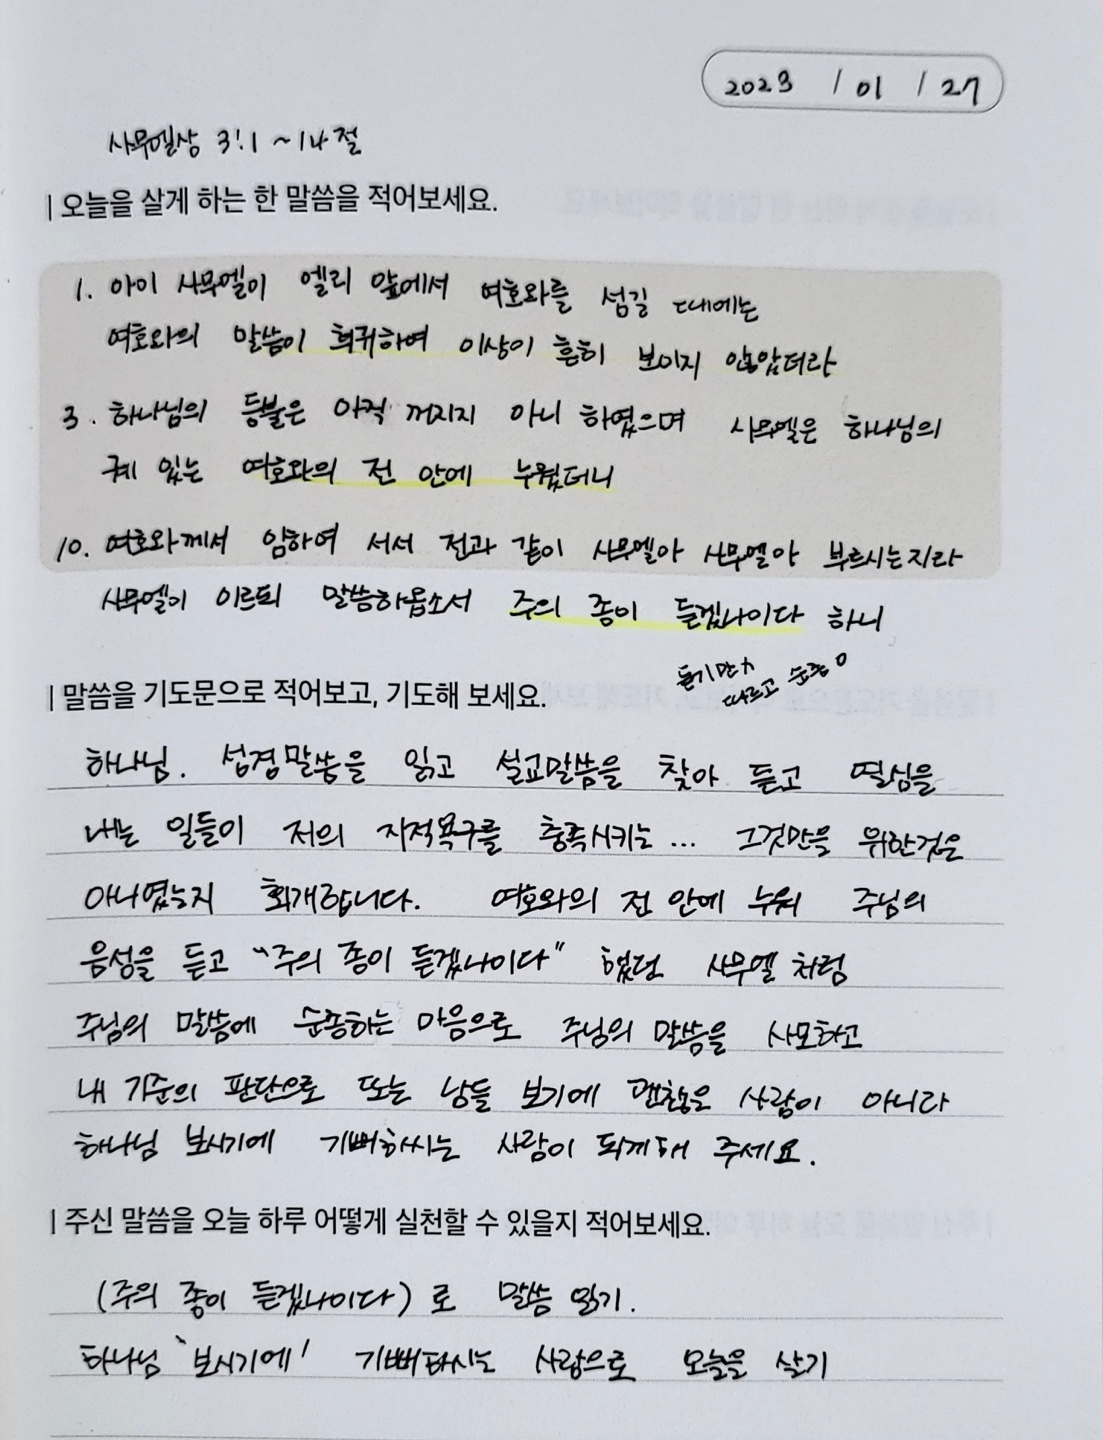 2023 / 01 / 27
사무엘상 3:1 ~ 14절
| 오늘을 살게 하는 한 말씀을 적어보세요.
1. 아이 사무엘이 엘리 앞에서 여호와를 섬길 때에는
여호와의 말씀이 희귀하여 이상이 흔히 보이지 않았더라
3. 하나님의 등불은 아직 꺼지지 아니 하였으며 사무엘은 하나님의
궤 있는 여호와의 전 안에 누웠더니
10. 여호와께서 임하여 서서 전과 같이 사무엘아 사무엘아 부르시는지라
사무엘이 이르되 말씀하옵소서 주의 종이 듣겠나이다 하니
듣기만 X
따르고 순종 O
| 말씀을 기도문으로 적어보고, 기도해 보세요.
하나님. 성경말씀을 읽고 설교말씀을 찾아 듣고 열심을
내는 일들이 저의 지적욕구를 충족시키는... 그것만을 위한것은
아니였는지 회개합니다. 여호와의 전 안에 누워 주님의
음성을 듣고 "주의 종이 듣겠나이다" 했던 사무엘 처럼
주님의 말씀에 순종하는 마음으로 주님의 말씀을 사모하고
내 기준의 판단으로 또는 남들 보기에 괜찮은 사람이 아니라
하나님 보시기에 기뻐하시는 사람이 되게해 주세요.
| 주신 말씀을 오늘 하루 어떻게 실천할 수 있을지 적어보세요.
(주의 종이 듣겠나이다)로 말씀 읽기.
하나님 '보시기에' 기뻐하시는 사람으로 오늘을 살기